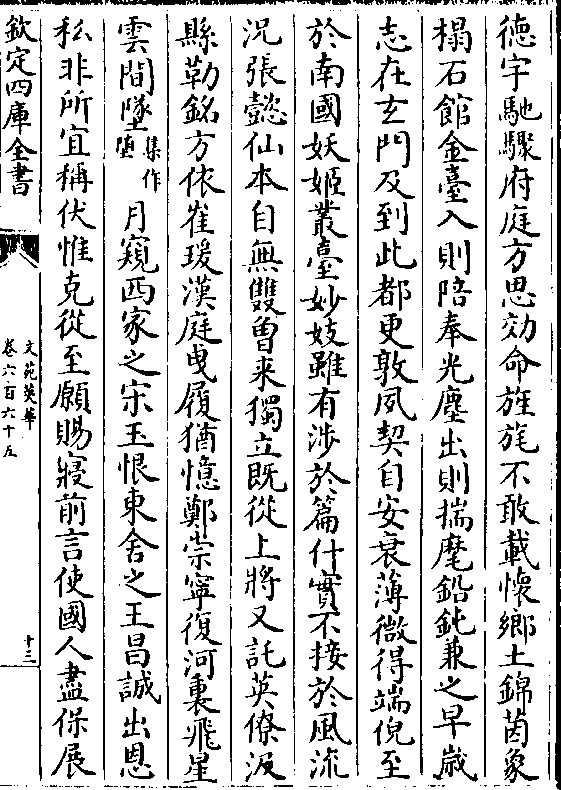 德宇馳驟府庭方思効命旌旄不敢載懷鄉土錦茵象
榻石館金臺入則陪奉光塵出則揣麾鉛鈍兼之早歳
志在玄門及到此都更敦夙契自安衰薄微得端倪至
於南國妖姬叢臺妙妓雖有涉於篇什實不接於風流
況張懿仙本自無雙曾来獨立既從上將又託英僚汲
縣勒銘方依崔瑗漢庭曳履猶憶鄭崇寧復河裏飛星
雲間墜集作堕月窺西家之宋玉恨東舍之王昌誠出恩
私非所宜稱伏惟克從至願賜寢前言使國人盡保展
欽定四庫全書
文苑英華
卷六百六十五
十三